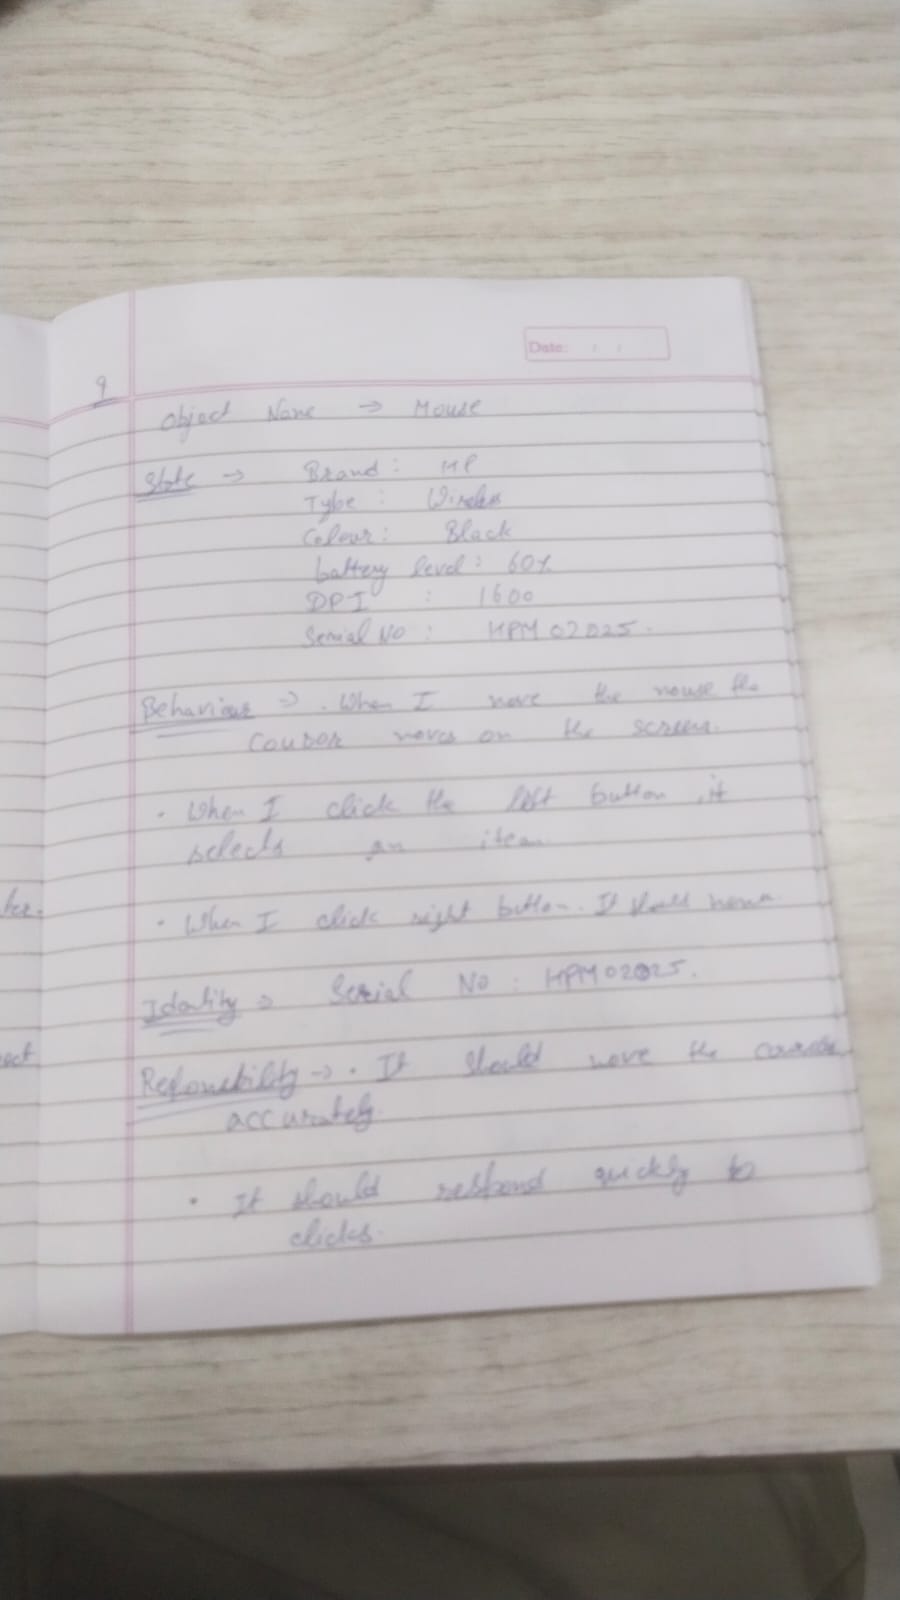 Date:
9
Object Name → Mouse
State → Brand: HP
Type: Wireless
Colour: Black
battery level: 60%
DPI : 1600
Serial No : HPM02025.
Behaviour → . When I move the mouse the
moves on the screen.
. When I click the left button, it
selects an item
. When I click right button. It menu
Identity → Serial No : HPM02025.
Responsibility → . It should move the
accurately.
. It should respond quickly to
clicks.